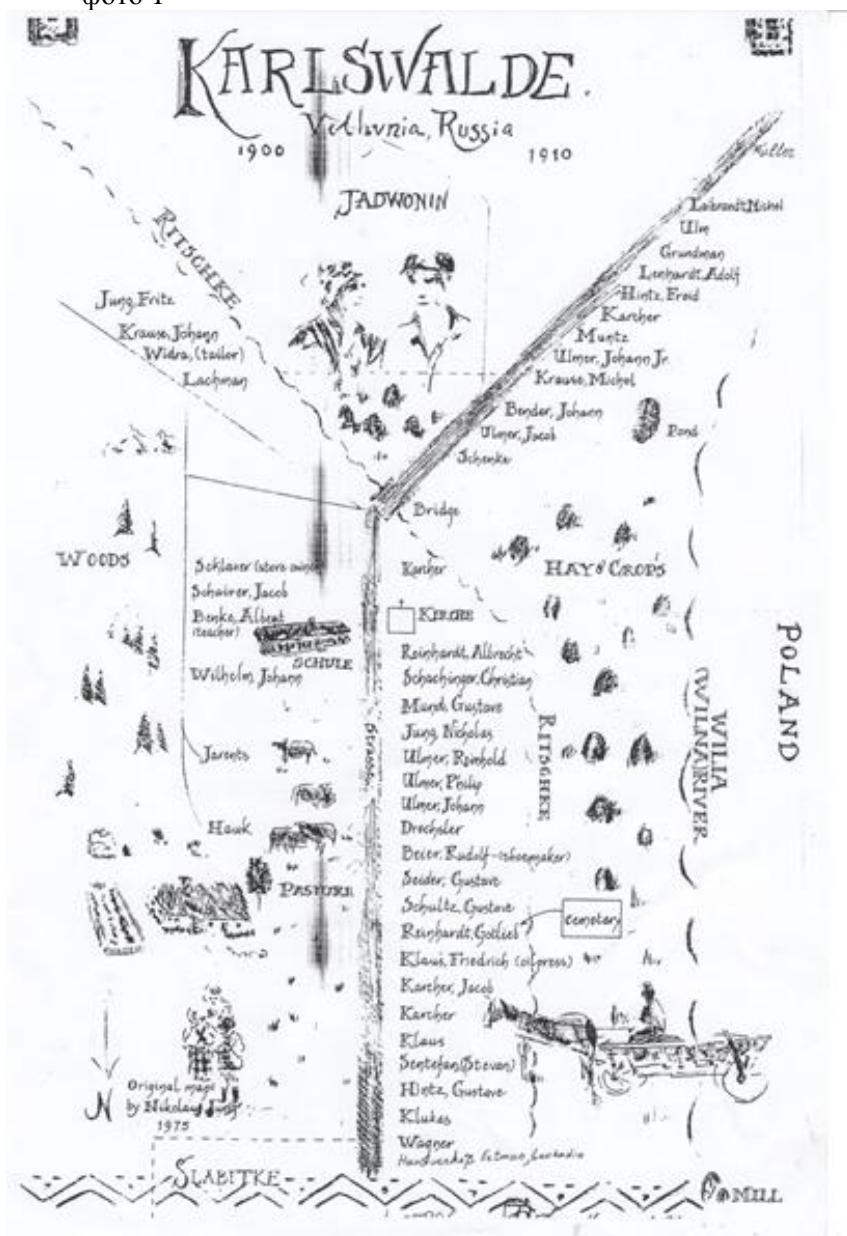 фото 1
KARLSWALDE.
Russia
1900
1910
JADWONIN
RITSCHKE
Jung, Fritz
Krause, Johann
Widra, (tailor)
Lachman
Laibrandt, Michel
Ulm
Grundman
Lenhardt, Adolf
Hintz, Freid
Karcher
Muntz
Ulmer, Johann Jr.
Krause, Michel
Bender, Johann
Ulmer, Jacob
Schenke
Pond
Bridge
WOODS
(store owner)
Schairer, Jacob
Benke, Albert
(teacher)
SCHULE
Wilhelm, Johann
Jarents
Hauk
PASTURE
Strasse
Karcher
KIRCHE
HAY & CROPS
Reinhardt, Albrecht
Schachinger, Christian
Mundi, Gustave
Jung, Nicholas
Ulmer, Reinhold
Ulmer, Philip
Ulmer, Johann
Drechsler
Beier, Rudolf-(shoemaker)
Seider, Gustave
Schultz, Gustave
Reinhardt, Gotlieb
Klaus, Friedrich (oilpress)
Karcher, Jacob
Karcher
Klaus
Sentefan (Stevan)
Hintz, Gustave
Klukas
Wagner
RITSCHKE
Cemetery
WILIA
(WILNA) RIVER
POLAND
N
Original maps
by Nikolaus Jung
1975
SLABITKE
MILL